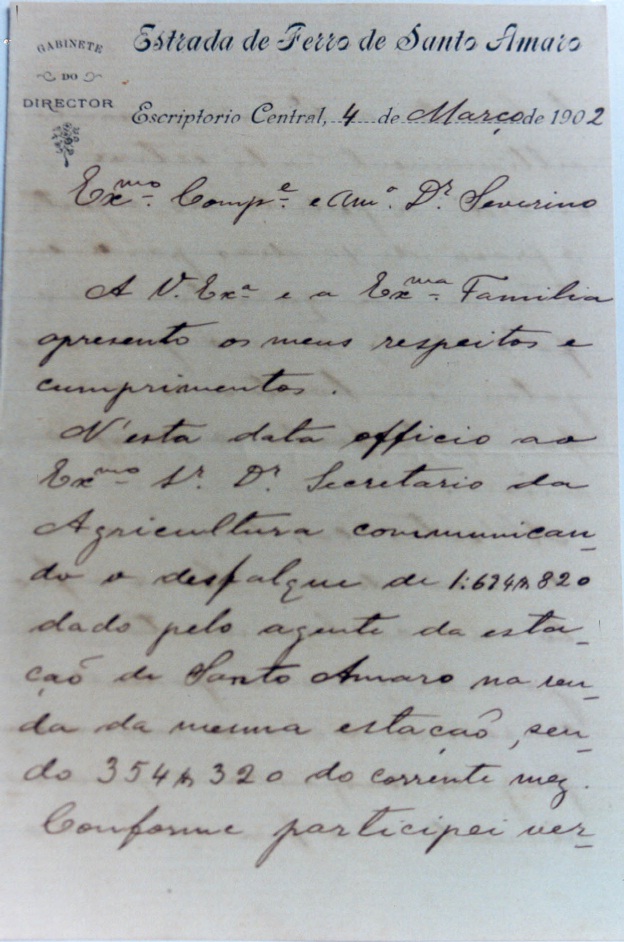 GABINETE
DO
DIRECTOR
Estrada de Ferro de Santo Amaro
Escriptorio Central, 4 de Março de 1902
Exmo. Compe. e Amo. Dr. Severino
A V. Exa. e a Exma. Familia
apresento os meus respeitos e
cumprimentos.
N'esta data officio ao
Exmo. Sr. Dr. Secretario da
Agricultura communican-
do o desfalque de 1:624$820
dado pelo agente da esta-
çaõ de Santo Amaro na ren-
da da mesma estaçaõ, sen-
do 354$320 do corrente mez.
Conforme participei ver-